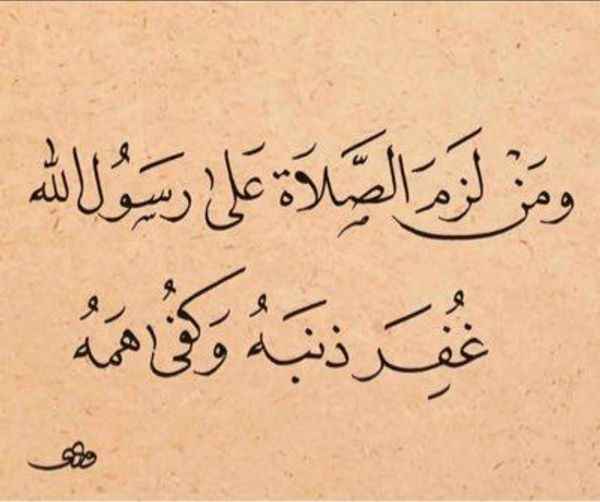 ومَنْ لَزِمَ الصَّلَاةَ عَلى رسَوُل الله
غُفِرَ ذنبَهُ وَكُفىَ همَهُ